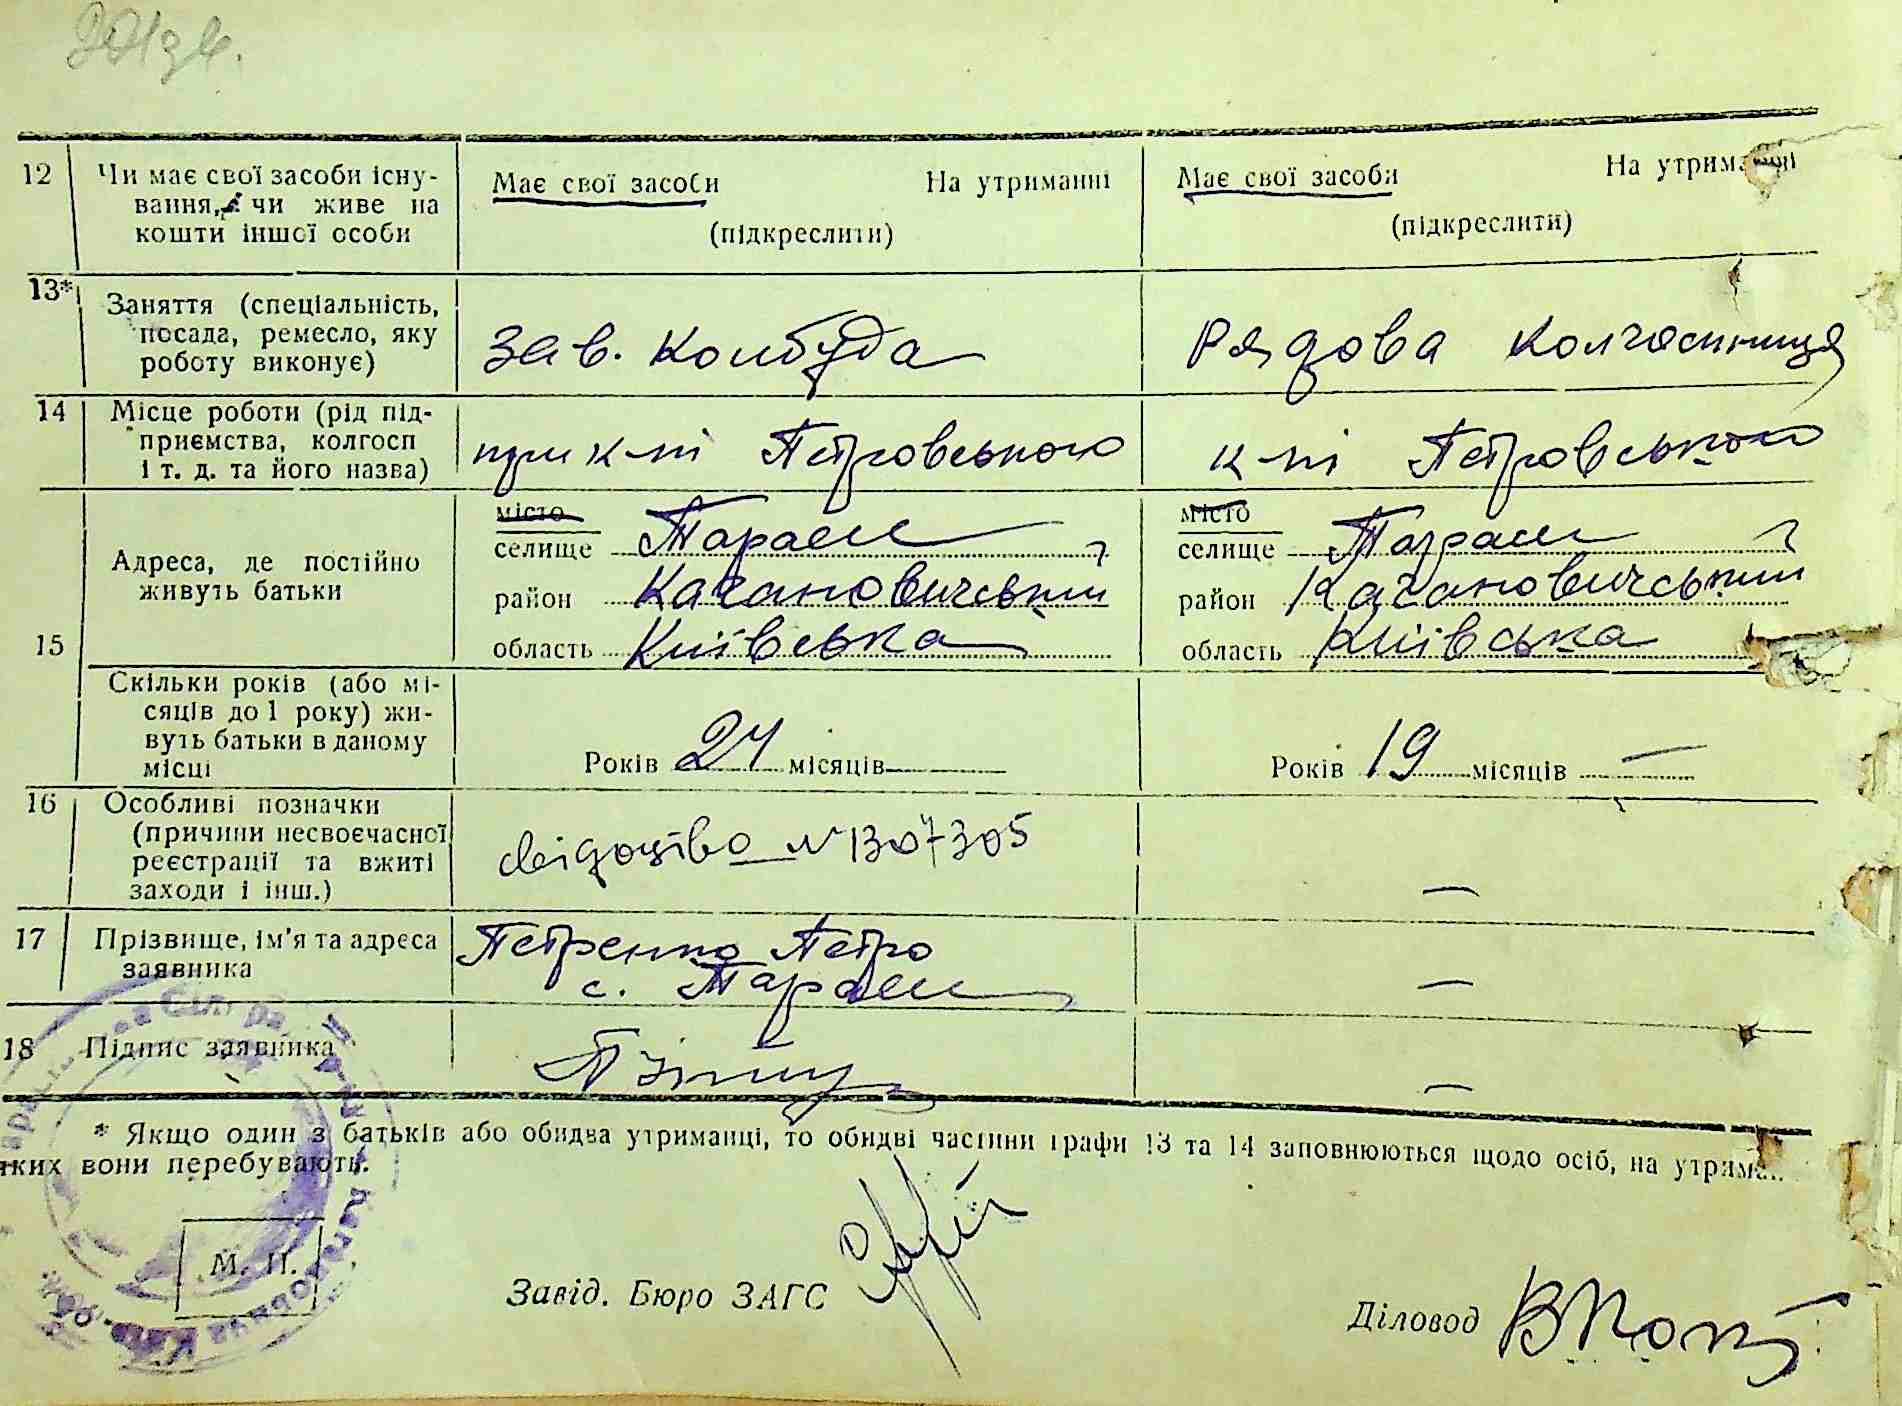 12 Чи має свої засоби існу-
вання, чи живе на
кошти іншої особи
Має свої засоби На утриманні
(підкреслити)
Має свої засоби На утриманні
(підкреслити)
13* Заняття (спеціальність,
посада, ремесло, яку
роботу виконує)
Зав. Конбуда
Рядова колгоспниця
14 Місце роботи (рід під-
приємства, колгосп
і т. д. та його назва)
при к-пі Петровського
к-пі Петровського
15 Адреса, де постійно
живуть батьки
місто
селище Тараси
район Кагановичський
область Київська
місто
селище Тараси
район Кагановичський
область Київська
Скільки років (або мі-
сяців до 1 року) жи-
вуть батьки в даному
місці
Років 24 місяців
Років 19 місяців —
16 Особливі позначки
(причини несвоєчасної
реєстрації та вжиті
заходи і інш.)
свідоцтво № 1307305
—
17 Прізвище, ім'я та адреса
заявника
Петренко Петро
с. Тараси
—
18 Підпис заявника
—
* Якщо один з батьків або обидва утриманці, то обидві частини графи 13 та 14 заповнюються щодо осіб, на утриман
яких вони перебувають.
М. П.
Завід. Бюро ЗАГС
Діловод